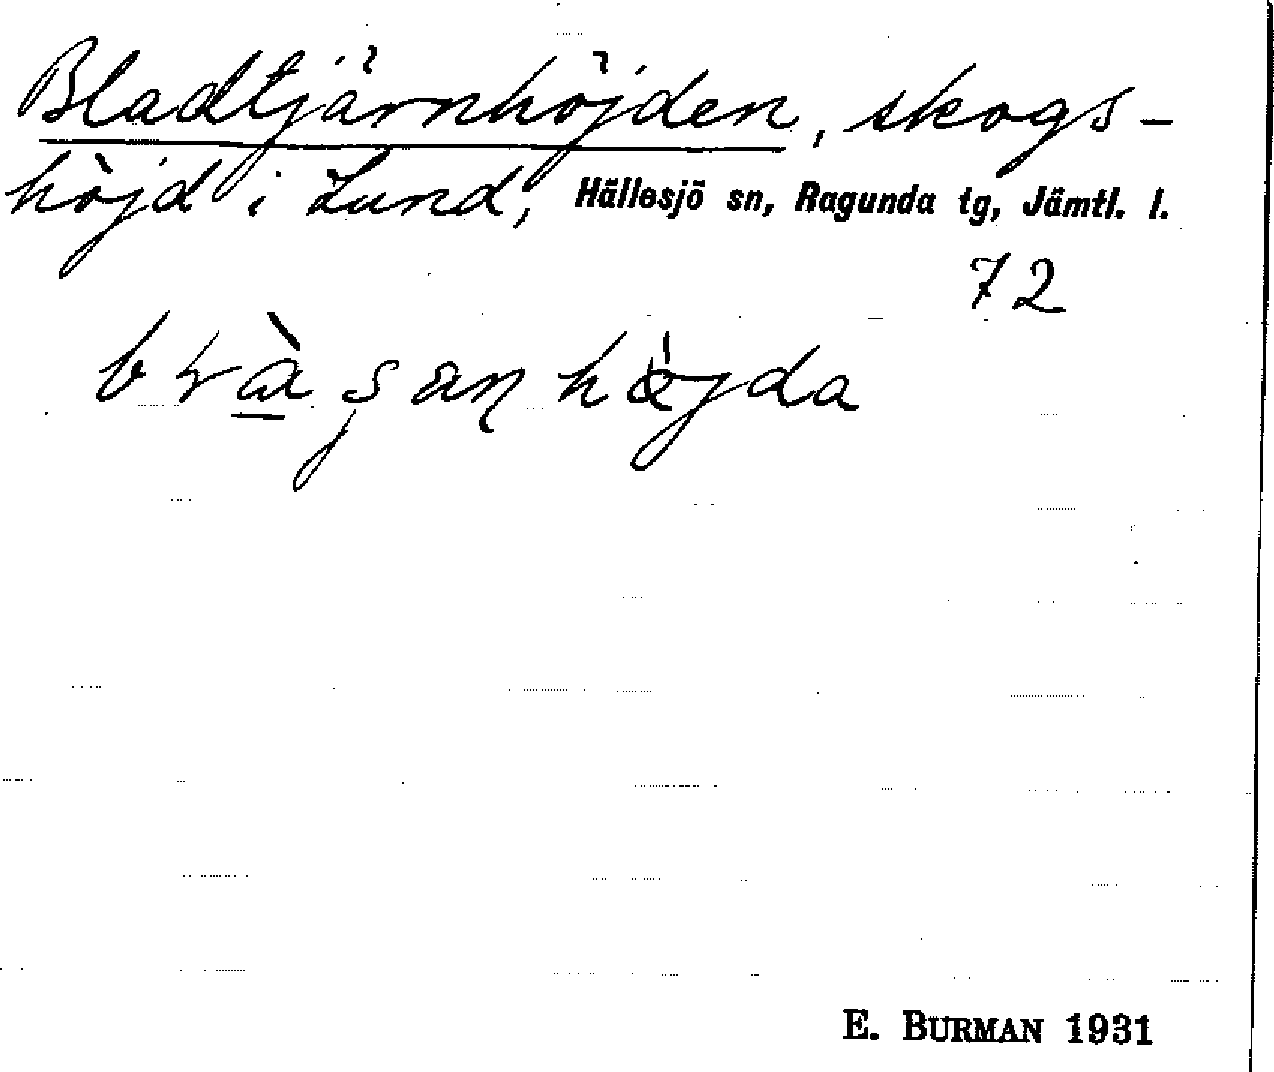 Bladtjärnhöjden, skogs-
höjd i Lund, Hällesjö sn, Ragunda tg, Jämtl. l.
72
E. BURMAN 1931